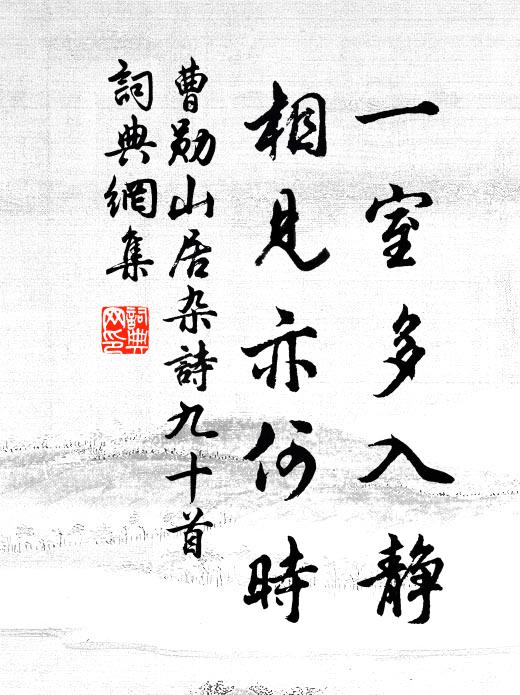 一室多入静
相見亦何時
曹勛山居杂詩九十首
詞典網集
詞典
网印